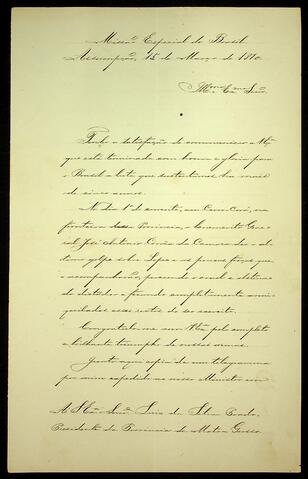 Missão Especial do Brasil
Assumpção, 15 de Março de 1870.
Illmo. e Exmo. Snr.
Tenho a satisfação de communicar a VEx.
que está terminada com honra e gloria para
o Brasil a luta que sustentamos ha mais
de cinco annos.
No dia 1º do corrente, em Cerro Corá, na
fronteira dessa Provincia, o Commte Gene-
ral José Antonio Corrêa da Camara deu o ul-
timo golpe sobre Lopez e as poucas forças que
o acompanhavão, perecendo o cruel e obstina-
do dictador e ficando completamente anni-
quilados esses restos do seu exercito.
Congratulo-me com VEx. pelo completo
e brilhante triumpho de nossas armas.
Junto aqui copia de um telegramma
por mim expedido ao nosso Ministro em
A S. Exa. o Snr. Luiz da Silva Prado,
Presidente da Provincia de Matto Grosso.